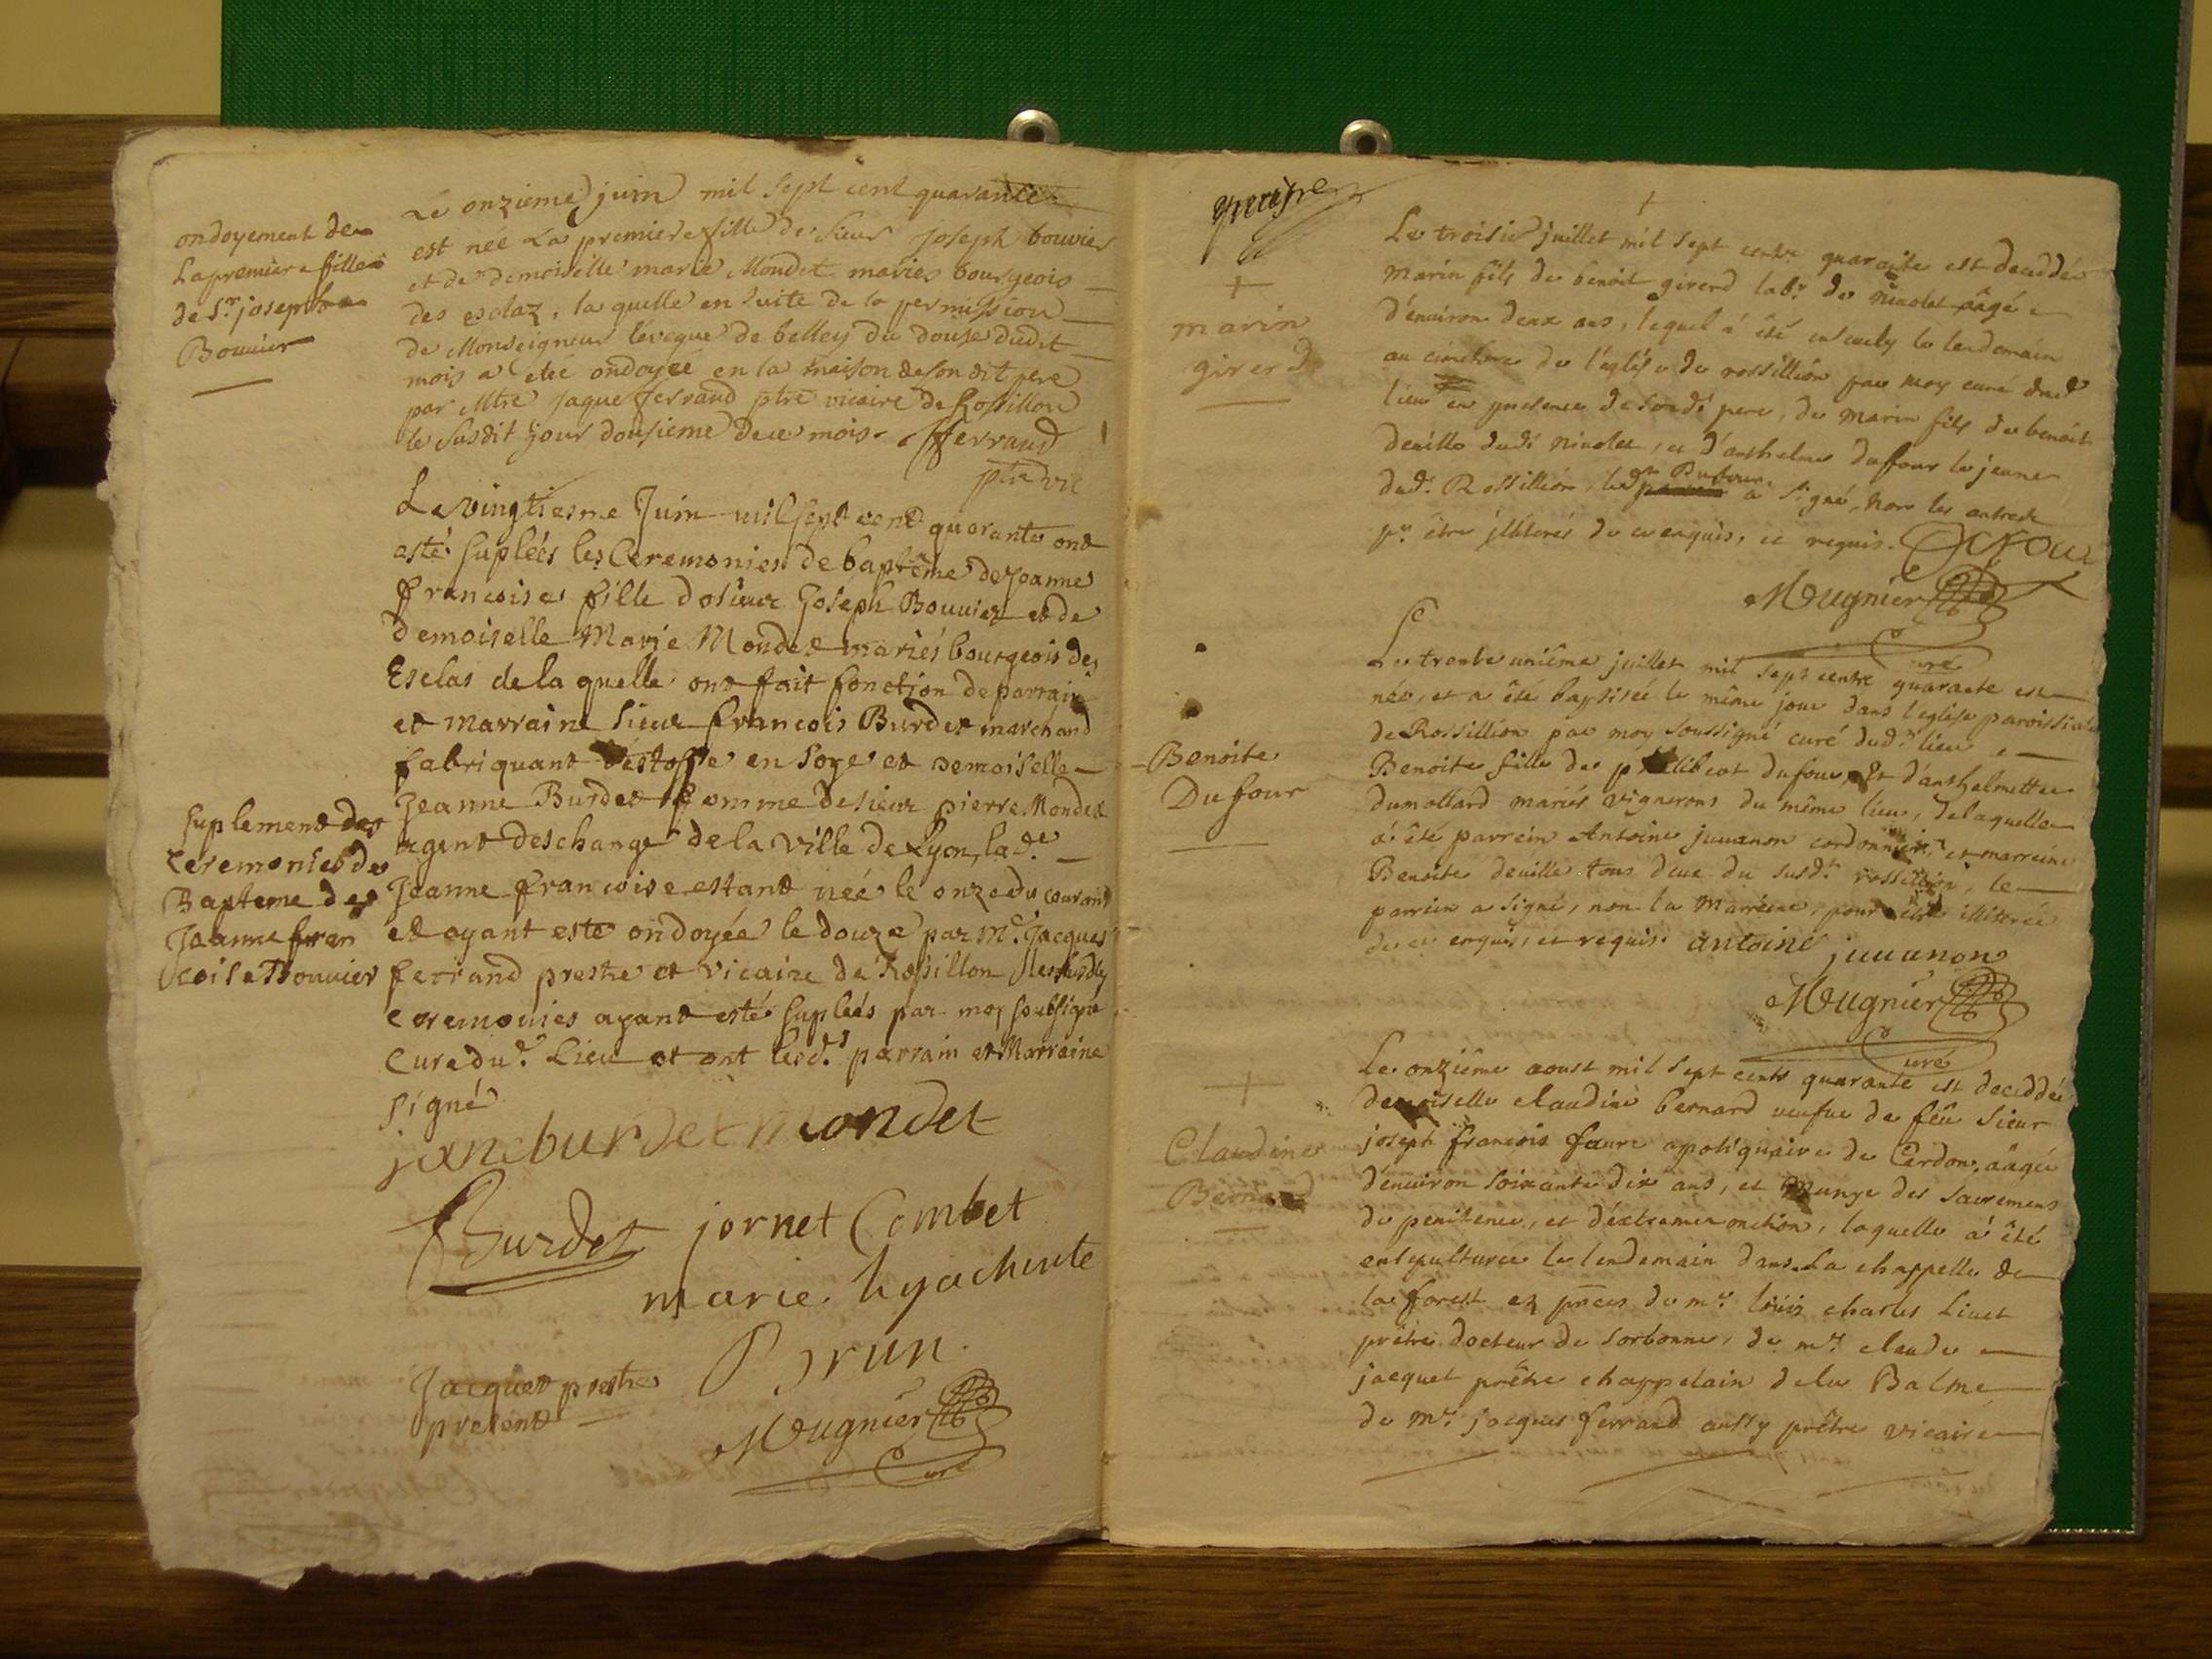 ondoyement de
La premiere fille
de Sr. joseph
Bouvier
Le onzieme juin mil sept cent quarante
est née La premiere fille de sieur joseph bouvier
et de demoiselle marie Mondet mariés bourgeois
des esclaz, la quelle en suite de la permission
de Monseigneur lévêque de belley du douse dudit
mois a eté ondoyée en la maison de son dit pere
par Mtre jaque ferrand ptre vicaire de Rossillon
le susdit jour dousieme de ce mois. ferrand
ptre vic
Suplement des
Ceremonies de
Bapteme de
Jeanne fran
coise Bouvier
Le vingtiesme Juin mil sept cent quarante ont
esté supleés les Ceremonies de baptême de Jeanne
francoise fille de sieur Joseph Bouvier et de
Demoiselle Marie Mondet mariés bourgeois des
Esclas de la quelle ont fait fonction de parrain
et marraine sieur francois Burdet marchand
fabriquant d'estoffe en soye et demoiselle
Jeanne Burdet femme de sieur pierre Mondet
agent deschange de la Ville de Lyon, lad.e
Jeanne francoise estant neé le onze du courant
et ayant esté ondoyée le douze par Mr. Jacques
ferrand prestre et vicaire de Rossillon les susd.
ceremonies ayant esté supleés par moy soubsigné
Curé du d. Lieu et ont lesd.s parrain et Marraine
signé
jane burdet mondet
f Burdet jornet Combet
marie hyachinte
Brun
Jacquet prestre
present
Mugnier
Curé
+
marin
girerd
Le troisie juillet mil sept cents quarante est deceddé
marin fils de benoit girerd labr. de nicolet aâgé
d'environ deux ans, lequel a été ensevely le lendemain
au cimetiere de l'eglise de rossillion par moy curé dud.
lieu en presence de sond. pere, de marin fils de benoit
deville dud. nicolet, et d'anthelme dufour le jeune
dud. Rossillion, led. Dufour a signé, non les autres
pr. être illiterés de ce enquis, et requis. Dufour
Mugnier
Curé
Benoite
Dufour
Le trente unième juillet mil sept cents quarante est
née, et a été baptisée le même jour dans l'eglise paroissiale
de Rossillion par moy soussigné curé dud. lieu
Benoite fille de philibert dufour, et d'anthelmette
dumollard mariés vignerons du même lieu, de laquelle
a été parrein Antoine juvanon cordonnier, et marreine
Benoite deville tous deux du susd. rossillion, le
parrein a signé, non la marreine, pour être illiterée
de ce enquis, et requis. antoine juvanon
Mugnier
Curé
+
Claudine
Bernard
Le onzième aoust mil sept cents quarante est deceddée
demoiselle claudine bernard veufve de feu sieur
joseph francois faure apotiquaire de Cerdon, aâgée
d'environ soixante dix ans, et munye des sacremens
de penitence, et d'extreme onction, laquelle a été
ensepulturée le lendemain dans la chappelle de
la forest en pnces de mr. louis charles Livet
prêtre docteur de sorbonne, de mr. claude
jacquet prêtre chappelain de la Balme
de mr. jacques ferrand aussy prêtre vicaire